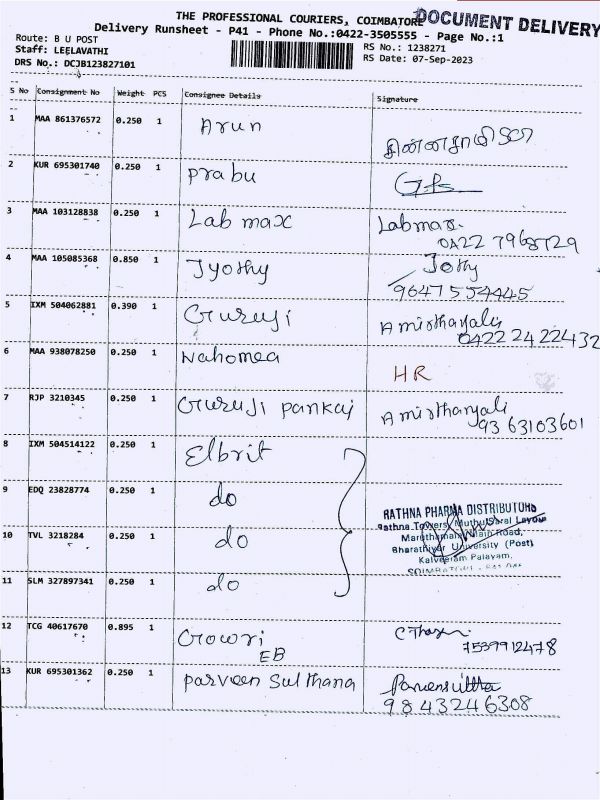 THE PROFESSIONAL COURIERS, COIMBATORE
DOCUMENT DELIVERY
Delivery Runsheet - P41 - Phone No.:0422-3505555 - Page No.:1
Route: B U POST
RS No.: 1238271
Staff: LEELAVATHI
RS Date: 07-Sep-2023
DRS No.: DCJB123827101
S No Consignment No Weight PCS Consignee Details Signature
1 MAA 861376572 0.250 1 Arun
2 KUR 695301740 0.250 1 Prabu
3 MAA 103128838 0.250 1 Lab max Labmax.
0422 7968729
4 MAA 105085368 0.850 1 Jyothy Jothy
9647554445
5 IXM 504062881 0.390 1 Guruji Amirthanjali
0422 2422432
6 MAA 938078250 0.250 1 Wahomea HR
7 RJP 3210345 0.250 1 Guruji pankaj Amirthanjali
93 63103601
8 IXM 504514122 0.250 1 Elbrit
9 EDQ 23828774 0.250 1 do
RATHNA PHARMA DISTRIBUTORS
Rathna Towers, Muthusaral Layout
10 TVL 3218284 0.250 1 do
Maruthamalai Main Road,
Bharathiyar University (Post)
Kalveeram Palayam,
11 SLM 327897341 0.250 1 do
COIMBATORE
12 TCG 40617670 0.895 1 Gowri
EB
7539912478
13 KUR 695301362 0.250 1 Parveen Sulthana
9843246308